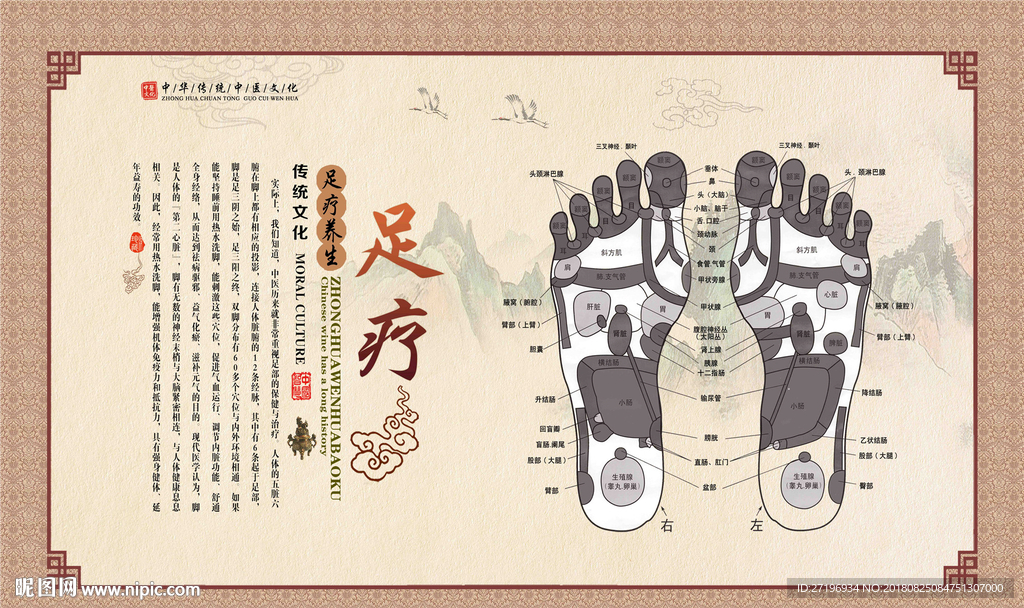 中医文化
中/华/传/统/中/医/文/化
ZHONG HUA CHUAN TONG GUO CUI WEN HUA
足疗
足疗养生
ZHONGHUAWENHUABAOKU
Chinese wine has a long history
传统文化 MORAL CULTURE
实际上，我们知道，中医历来就非常重视足部的保健与治疗。人体的五脏六
腑在脚上都有相应的投影，连接人体脏腑的12条经脉，其中有6条起于足部，
脚是足三阴之始，足三阳之终，双脚分布有60多个穴位与内外环境相通。如果
能坚持睡前用热水洗脚，能刺激这些穴位，促进气血运行、调节内脏功能、舒通
全身经络，从而达到祛病驱邪、益气化瘀、滋补元气的目的。现代医学认为，脚
是人体的「第二心脏」，脚有无数的神经末梢与大脑紧密相连，与人体健康息息
相关。因此，经常用热水洗脚，能增强机体免疫力和抵抗力，具有强身健体、延
年益寿的功效。
三叉神经、颞叶
三叉神经、颞叶
头颈淋巴腺
头、颈淋巴腺
垂体
鼻
头（大脑）
小脑、脑干
舌.口腔
颈动脉
颈
食管.气管
甲状旁腺
甲状腺
腹腔神经丛
（太阳丛）
肾上腺
胰腺
十二指肠
输尿管
膀胱
直肠、肛门
盆部
腋窝（腑腔）
臂部（上臂）
胆囊
升结肠
回盲瓣
盲肠.阑尾
股部（大腿）
臂部
腋窝（腋腔）
臂部（上臂）
降结肠
乙状结肠
股部（大腿）
臀部
额窦
额窦
额窦
额窦
额窦
目
目
耳
耳
斜方肌
肩
肺.支气管
肝脏
胃
肾脏
横结肠
小肠
生殖腺
（睾丸.卵巢）
额窦
额窦
额窦
额窦
额窦
目
目
耳
耳
斜方肌
肩
肺.支气管
心脏
胃
肾脏
脾脏
横结肠
小肠
生殖腺
（睾丸.卵巢）
右
左
昵图网 www.nipic.com
ID:27196934 NO:20180825084751307000